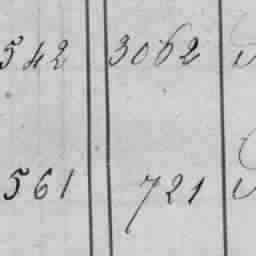 542 3062
561 721